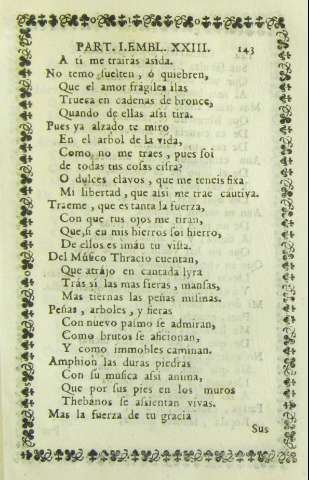 PART. I. EMBL. XXIII. 143
A ti me trairàs asida.
No temo ſuelten, ò quiebren,
Que el amor fràgiles ilas
Trueca en cadenas de bronce,
Quando de ellas aſsi tira.
Pues ya alzado te miro
En el arbol de la vida,
Como no me traes, pues ſoi
de todas tus coſas ciſra?
O dulces clavos, que me teneis fixa
Mi libertad, que aſsi me trae cautiva.
Traeme, que es tanta la fuerza,
Con que tus ojos me tiran,
Que, ſi eu mis hierros ſoi hierro,
De ellos es imàn tu viſta.
Del Muſico Thracio cuentan,
Que atràjo en cantada lyra
Tràs sì las mas fieras, manſas,
Mas tiernas las peñas miſmas.
Peñas, arboles, y fieras
Con nuevo paſmo ſe admiran,
Como brutos ſe aficionan,
Y como immobles caminan.
Amphion las duras piedras
Con ſu muſica aſsi anima,
Que por sus pies en los muros
Thebános ſe aſsientan vivas.
Mas la fuerza de tu gracia
Sus